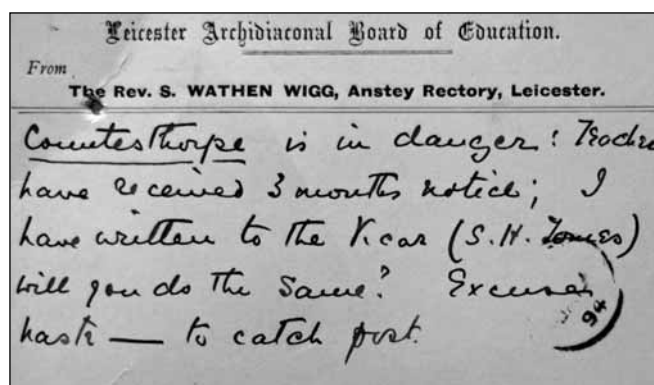 Leicester Archidiaconal Board of Education.
From
The Rev. S. WATHEN WIGG, Anstey Rectory, Leicester.
Countesthorpe is in danger: 
have received 3 months notice; I
have written to the Vicar (S.H. Jones)
will you do the same? Excuse
haste — to catch post.
94